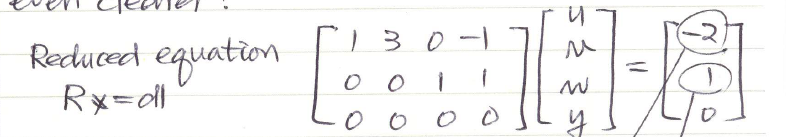 even clearer!
Reduced equation
Rx=d
[1 3 0 -1
0 0 1 1
0 0 0 0] [u
v
w
y] = [-2
1
0]